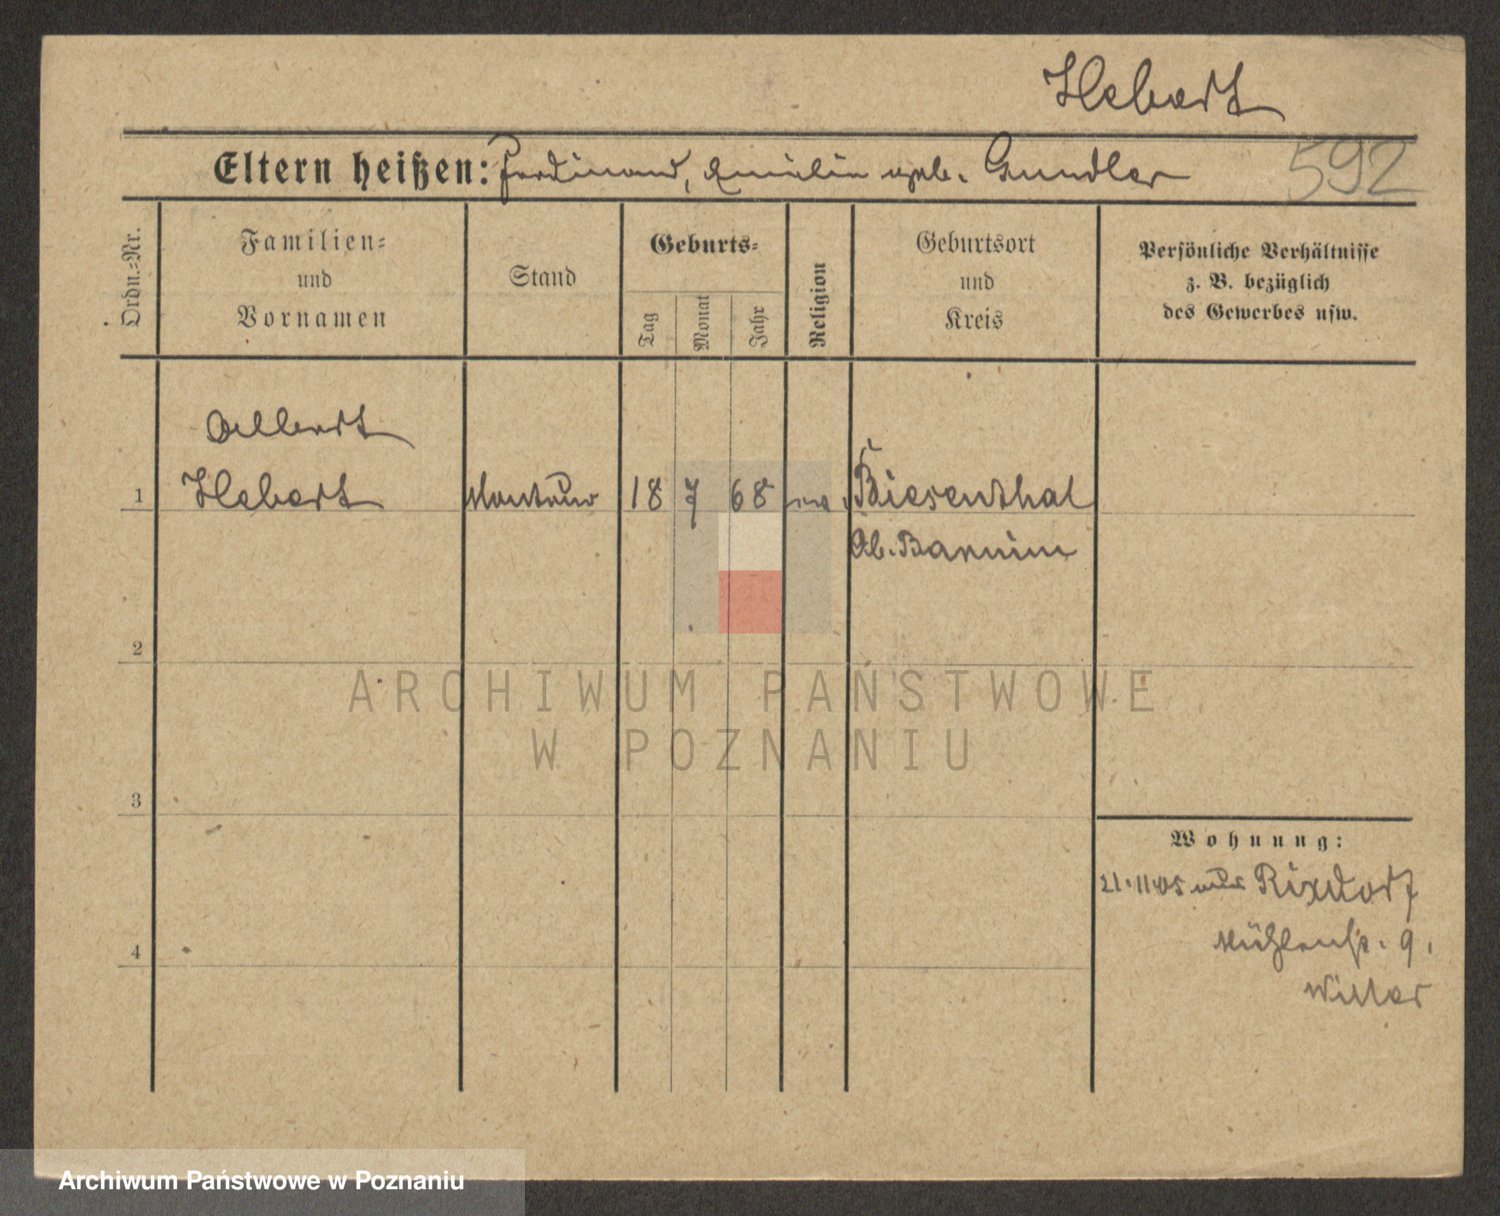 Hebert
Eltern heißen: Ferdinand, Emilie geb. Gundler
592
Ordn.-Nr.
Familien-
und
Vornamen
Stand
Geburts-
Tag
Monat
Jahr
Religion
Geburtsort
und
Kreis
Persönliche Verhältnisse
z. B. bezüglich
des Gewerbes usw.
Albert
1 Hebert Monteur 18 7 68 Biesenthal
Ob. Barnim
2
ARCHIWUM PAŃSTWOWE
W POZNANIU
3
Wohnung:
21.11.05 Rixdorf
Mühlenstr. 9.
4
Archiwum Państwowe w Poznaniu